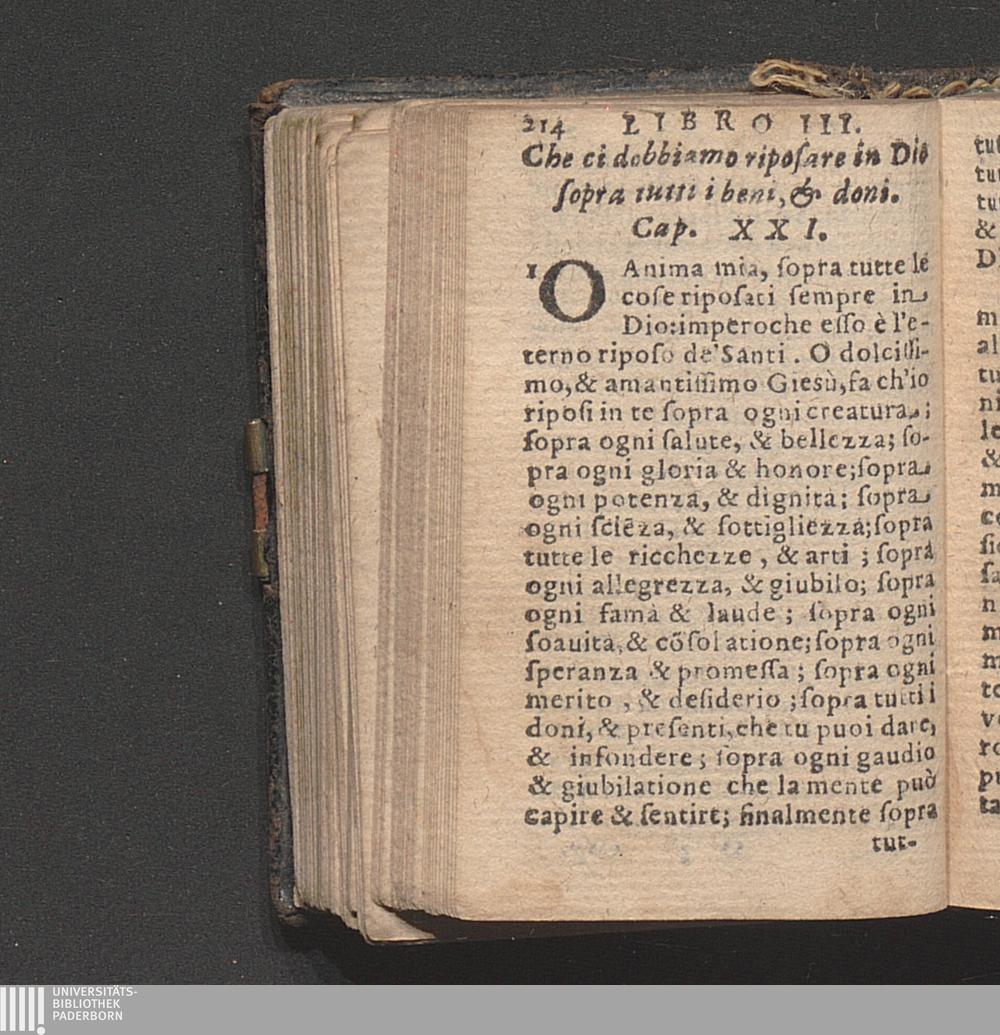 214 LIBRO III.
Che ci dobbiamo ripoſare in Dio
ſopra tutti i beni, & doni.
Cap. XXI.
1 O Anima mia, ſopra tutte le
coſe ripoſati ſempre in
Dio:imperoche eſſo è l'e-
terno ripoſo de' Santi. O dolciſſi-
mo,& amantiſſimo Gieſù,fa ch'io
ripoſi in te ſopra ogni creatura;
ſopra ogni ſalute, & bellezza; ſo-
pra ogni gloria & honore;ſopra
ogni potenza, & dignità; ſopra
ogni ſciēza, & ſottigliezza;ſopra
tutte le ricchezze, & arti; ſopra
ogni allegrezza, & giubilo; ſopra
ogni fama & laude; ſopra ogni
ſoauità,& cōſolatione;ſopra ogni
ſperanza & promeſſa; ſopra ogni
merito, & deſiderio;ſopra tutti i
doni,& preſenti,che tu puoi dare,
& infondere; ſopra ogni gaudio
& giubilatione che la mente può
capire & ſentire; finalmente ſopra
tut-
tut
tu
tu
&
D
m
al
tu
ni
le
&
m
co
ſi
ſa
n
m
m
te
ve
ro
pu
ta
UNIVERSITÄTS-
BIBLIOTHEK
PADERBORN